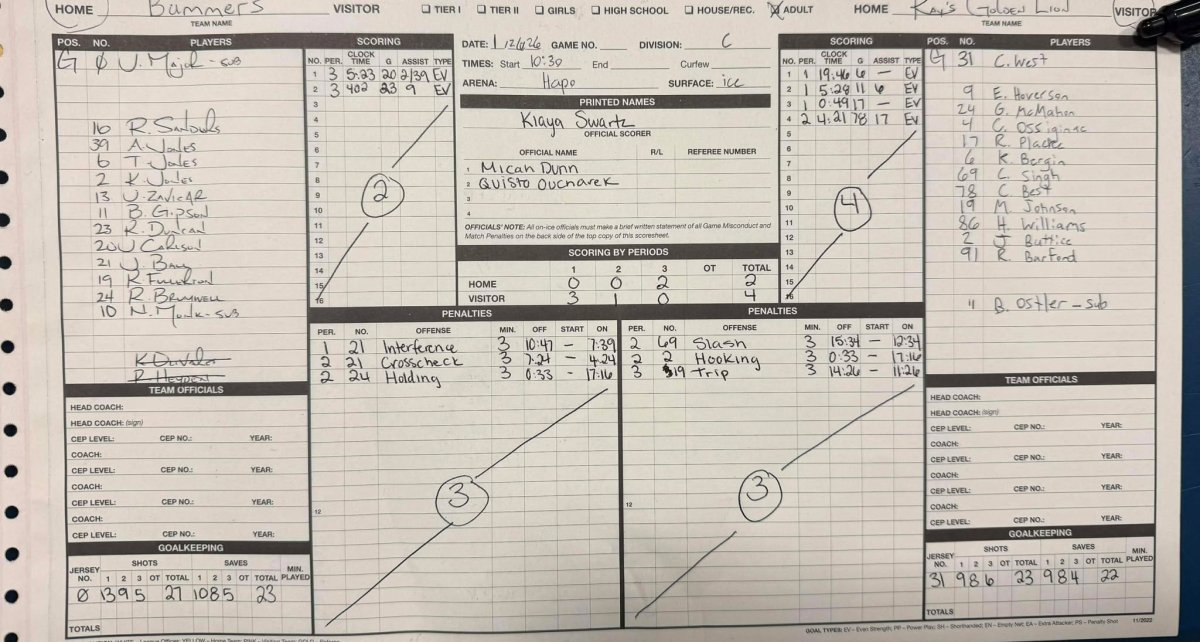 HOME Bummers VISITOR ☐ TIER I ☐ TIER II ☐ GIRLS ☐ HIGH SCHOOL ☐ HOUSE/REC. ☒ ADULT HOME Kay's Golden Lion VISITOR
TEAM NAME TEAM NAME
POS. NO. PLAYERS
G Ø J. Major - SUB
16 R. Sandouls
39 A. Jones
6 T. Jones
2 K. Jones
13 J. ZAVICAR
11 B. Gipson
23 R. Duncan
20 J Carlson
21 J. Bay
19 K. Fullerton
24 R. Brumwell
10 N. Monk - SUB
SCORING
NO. PER. CLOCK TIME G ASSIST TYPE
1 3 5:23 20 2/39 EV
2 3 402 23 9 EV
3
4
5
6
7
8
9
10
11
12
13
14
15
16
2
DATE: 1/12/26 GAME NO. DIVISION: C
TIMES: Start 10:30 End Curfew
ARENA: Hapo SURFACE: ice
PRINTED NAMES
Klaya Swartz
OFFICIAL SCORER
OFFICIAL NAME R/L REFEREE NUMBER
1 Micah Dunn
2 Quisto Oucharek
3
4
OFFICIALS' NOTE: All on-ice officials must make a brief written statement of all Game Misconduct and
Match Penalties on the back side of the top copy of this scoresheet.
SCORING BY PERIODS
1 2 3 OT TOTAL
HOME 0 0 2 2
VISITOR 3 1 0 4
SCORING
NO. PER. CLOCK TIME G ASSIST TYPE
1 1 19:46 6 — EV
2 1 5:28 11 6 EV
3 1 0:49 17 — EV
4 2 4:21 78 17 EV
5
6
7
8
9
10
11
12
13
14
15
16
4
POS. NO. PLAYERS
G 31 C. West
9 E. Hoverson
24 G. McMahon
4 C. Ossiginac
17 R. Placke
6 K. Bergin
69 C. Singh
78 C. Best
19 M. Johnson
86 H. Williams
2 J. Buttice
91 R. Barford
11 B. Ostler - sub
PENALTIES
PER. NO. OFFENSE MIN. OFF START ON
1 21 Interference 3 10:47 — 7:39
2 21 Crosscheck 3 7:24 — 4:24
2 24 Holding 3 0:33 — 17:16
12
3
PENALTIES
PER. NO. OFFENSE MIN. OFF START ON
2 69 Slash 3 15:34 — 12:34
2 2 Hooking 3 0:33 — 17:16
3 19 Trip 3 14:26 — 11:26
12
3
TEAM OFFICIALS
HEAD COACH:
HEAD COACH: (sign)
CEP LEVEL: CEP NO.: YEAR:
COACH:
CEP LEVEL: CEP NO.: YEAR:
COACH:
CEP LEVEL: CEP NO.: YEAR:
COACH:
CEP LEVEL: CEP NO.: YEAR:
GOALKEEPING
JERSEY NO. SHOTS SAVES MIN. PLAYED
1 2 3 OT TOTAL 1 2 3 OT TOTAL
Ø 13 9 5 27 10 8 5 23
TOTALS
TEAM OFFICIALS
HEAD COACH:
HEAD COACH: (sign)
CEP LEVEL: CEP NO.: YEAR:
COACH:
CEP LEVEL: CEP NO.: YEAR:
COACH:
CEP LEVEL: CEP NO.: YEAR:
COACH:
CEP LEVEL: CEP NO.: YEAR:
GOALKEEPING
JERSEY NO. SHOTS SAVES MIN. PLAYED
1 2 3 OT TOTAL 1 2 3 OT TOTAL
31 9 8 6 23 9 8 4 22
TOTALS
GOAL TYPES: EV – Even Strength; PP – Power Play; SH – Shorthanded; EN – Empty Net; EA – Extra Attacker; PS – Penalty Shot 11/2022